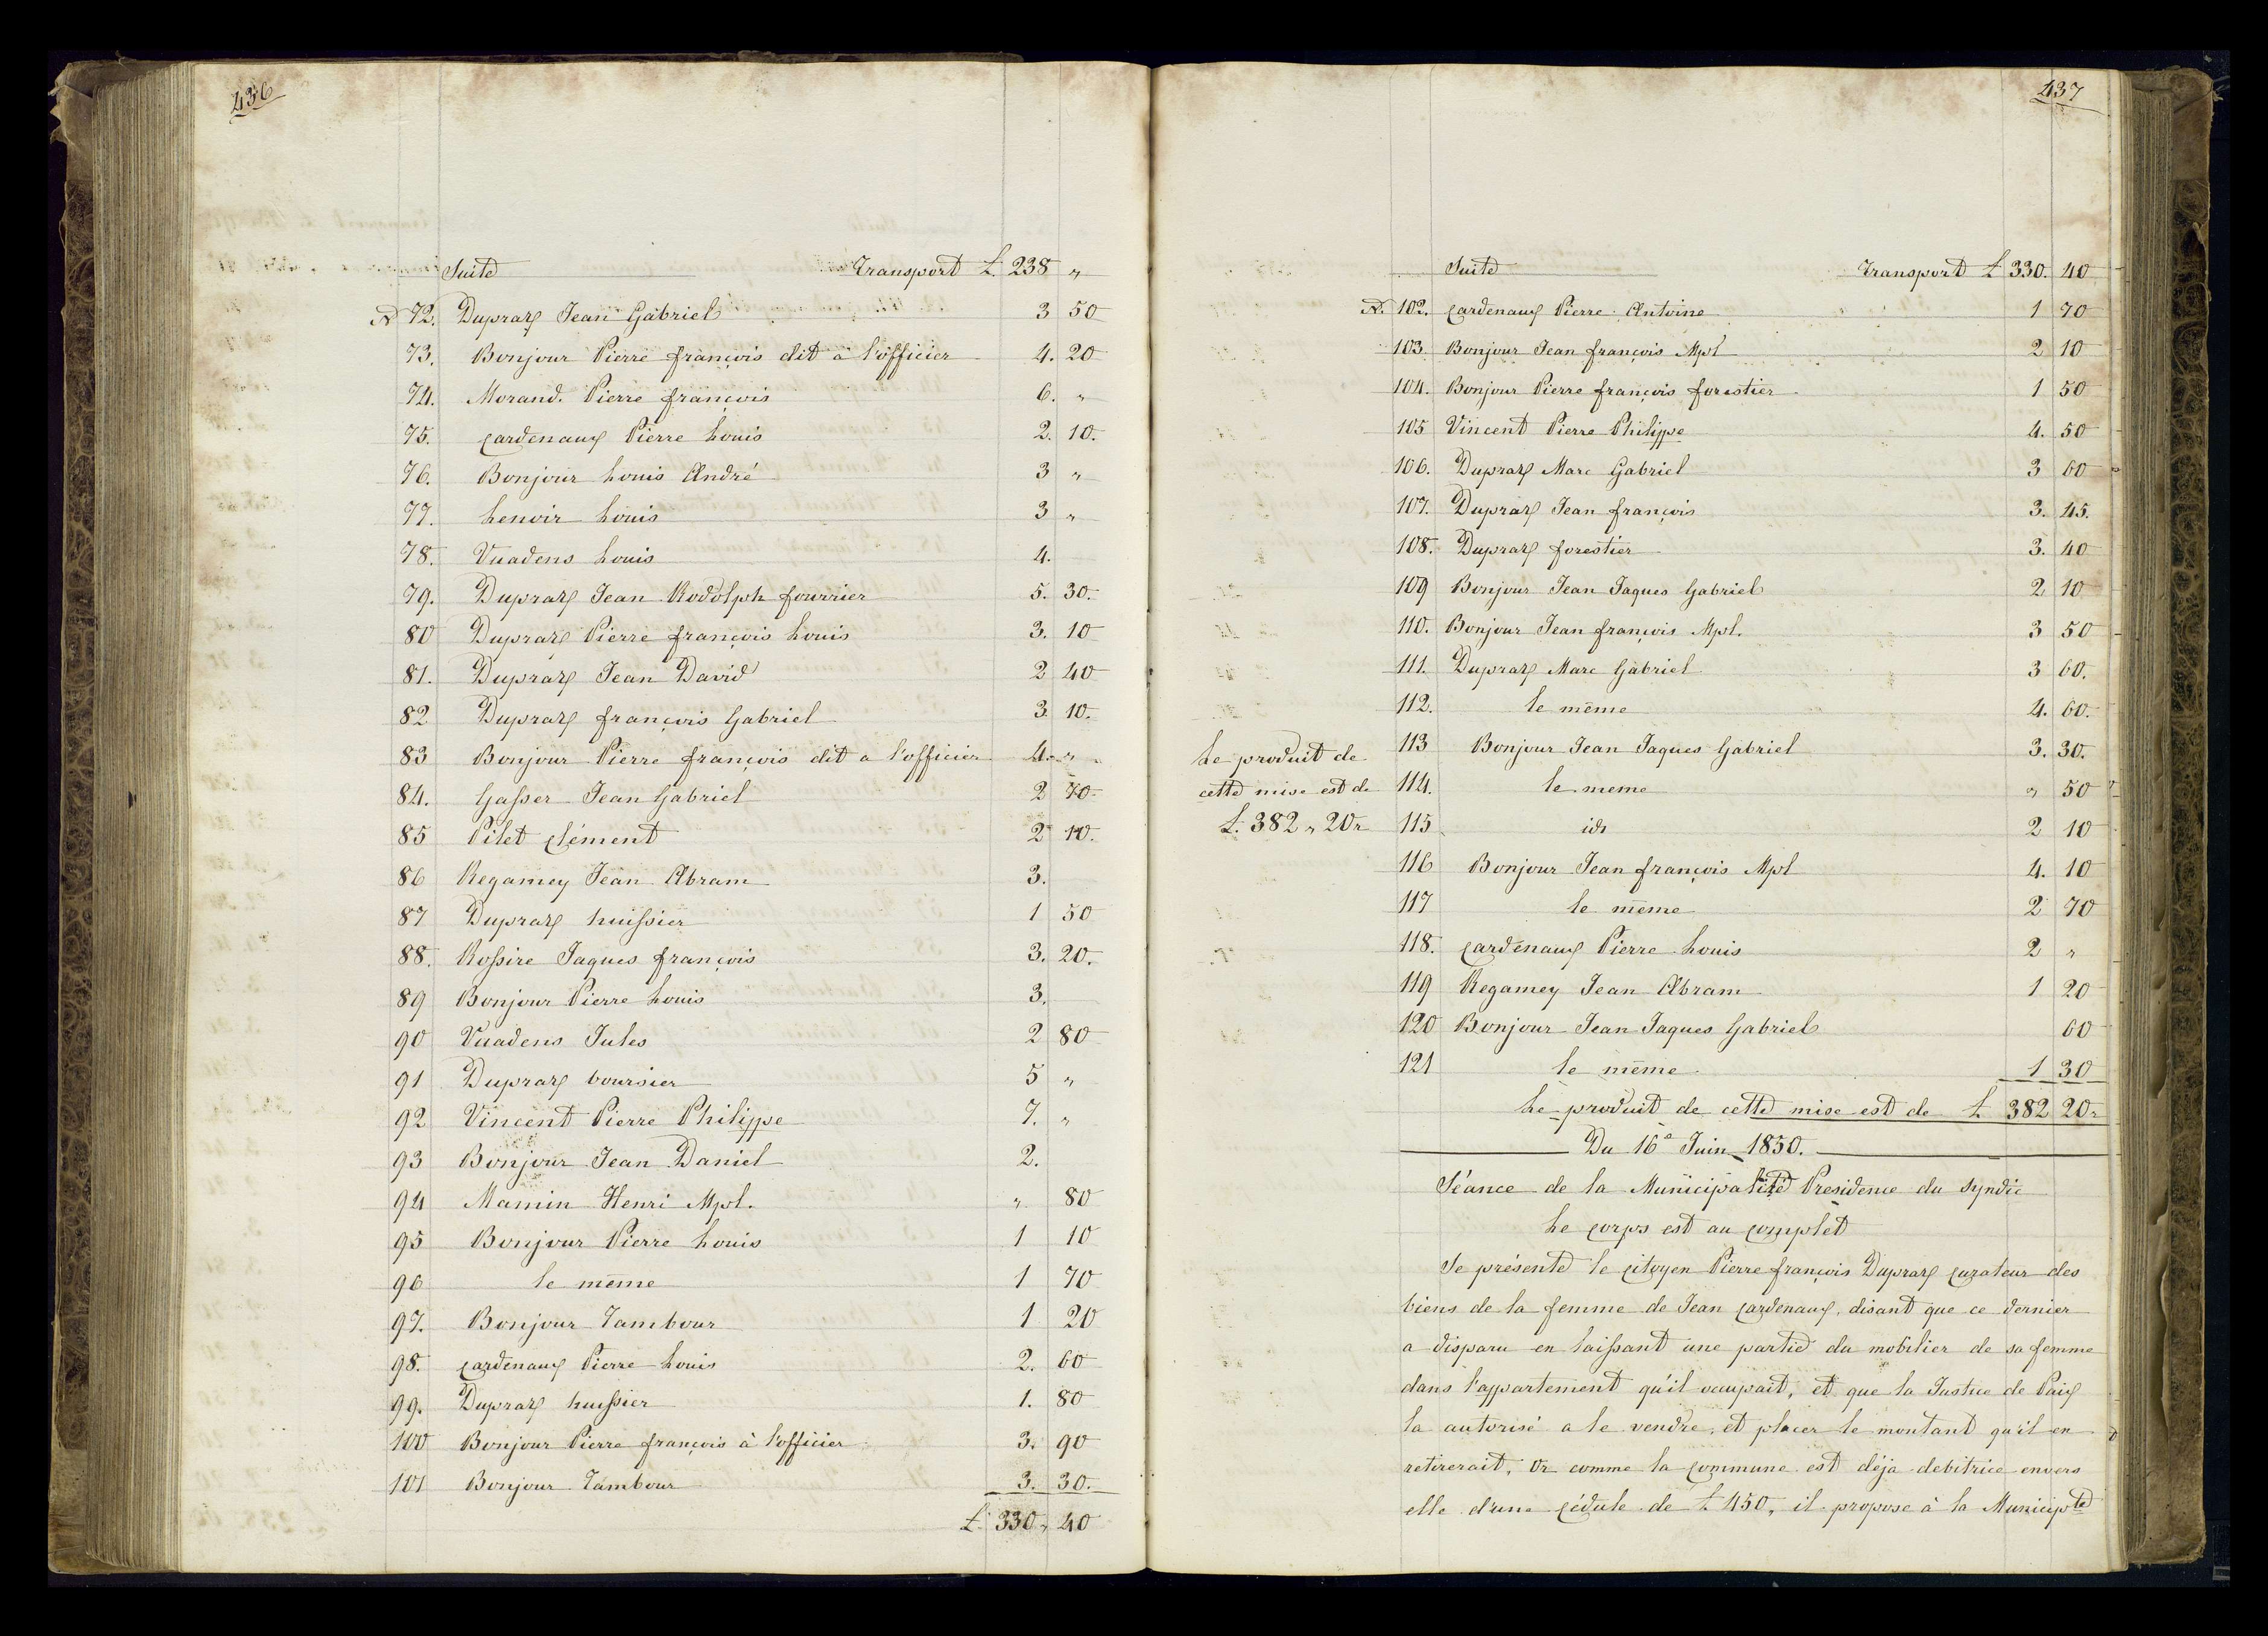 436
Suite Transport £ 238 "
N 72. Dupraz Jean Gabriel 3 50
73. Bonjour Pierre françois dit à l'officier 4. 20
74. Morand. Pierre françois 6. "
75. Cardenaux Pierre Louis 2. 10.
76. Bonjour Louis André 3 "
77. Lenoir Louis 3 "
78. Vuadens Louis 4.
79. Dupraz Jean Rodolph fourrier 5. 30.
80 Dupraz Pierre françois Louis 3. 10
81. Dupraz Jean David 2 40
82 Dupraz françois Gabriel 3 10.
83 Bonjour Pierre françois dit a l'officier 4. "
84. Gasser Jean Gabriel 2 70
85 Pilet Clément 2 10.
86 Regamey Jean Abram 3.
87 Dupraz huissier 1 50
88. Rossire Jaques françois 3. 20.
89 Bonjour Pierre Louis 3.
90 Vuadens Jules 2 80
91 Dupraz boursier 5 "
92 Vincent Pierre Philippe 7. "
93 Bonjour Jean Daniel 2.
94 Mamin Henri Mpl. " 80
95 Bonjour Pierre Louis 1 10
96 le même 1 70
97. Bonjour Tambour 1 20
98. Cardenaux Pierre Louis 2. 60
99. Dupraz huissier 1. 80
100 Bonjour Pierre françois à l'officier 3. 90
101 Bonjour Tambour 3. 30.
£ 330 " 40
437
Suite Transport £ 330. 40
N. 102. Cardenaux Pierre Antoine 1 70
103 Bonjour Jean françois Mpl 2 10
104. Bonjour Pierre françois forestier 1 50
105 Vincent Pierre Philippe 4. 50
106. Dupraz Marc Gabriel 3 60
107. Dupraz Jean françois 3. 45.
108. Dupraz forestier 3. 40
109 Bonjour Jean Jaques Gabriel 2 10
110. Bonjour Jean françois Mpl. 3 50
111. Dupraz Marc Gabriel 3 60.
112. le même 4. 60.
113 Bonjour Jean Jaques Gabriel 3. 30.
114. le meme " 50
115 id 2 10
Le produit de
cette mise est de
£. 382 " 20 "
116 Bonjour Jean françois Mpl 4. 10
117 le même 2 70
118. Cardenaux Pierre Louis 2 "
119 Regamey Jean Abram 1 20
120 Bonjour Jean Jaques Gabriel 60
121 le même 1 30
Le produit de cette mise est de £ 382 20 "
Du 16e Juin 1850.
Séance de la Municipalité Présidence du Syndic
Le Corps est au Complet
Se présente le Citoyen Pierre françois Dupraz Curateur des
biens de la femme de Jean Cardenaux, disant que ce dernier
a disparu en laissant une partie du mobilier de sa femme
dans l'appartement qu'il occupait, et que la Justice de Paix
la autorisé a le vendre, et placer le montant qu'il en
retirerait, Or comme la Commune est déja debitrice envers
elle d'une Cédule de £ 450, il propose à la Municipté